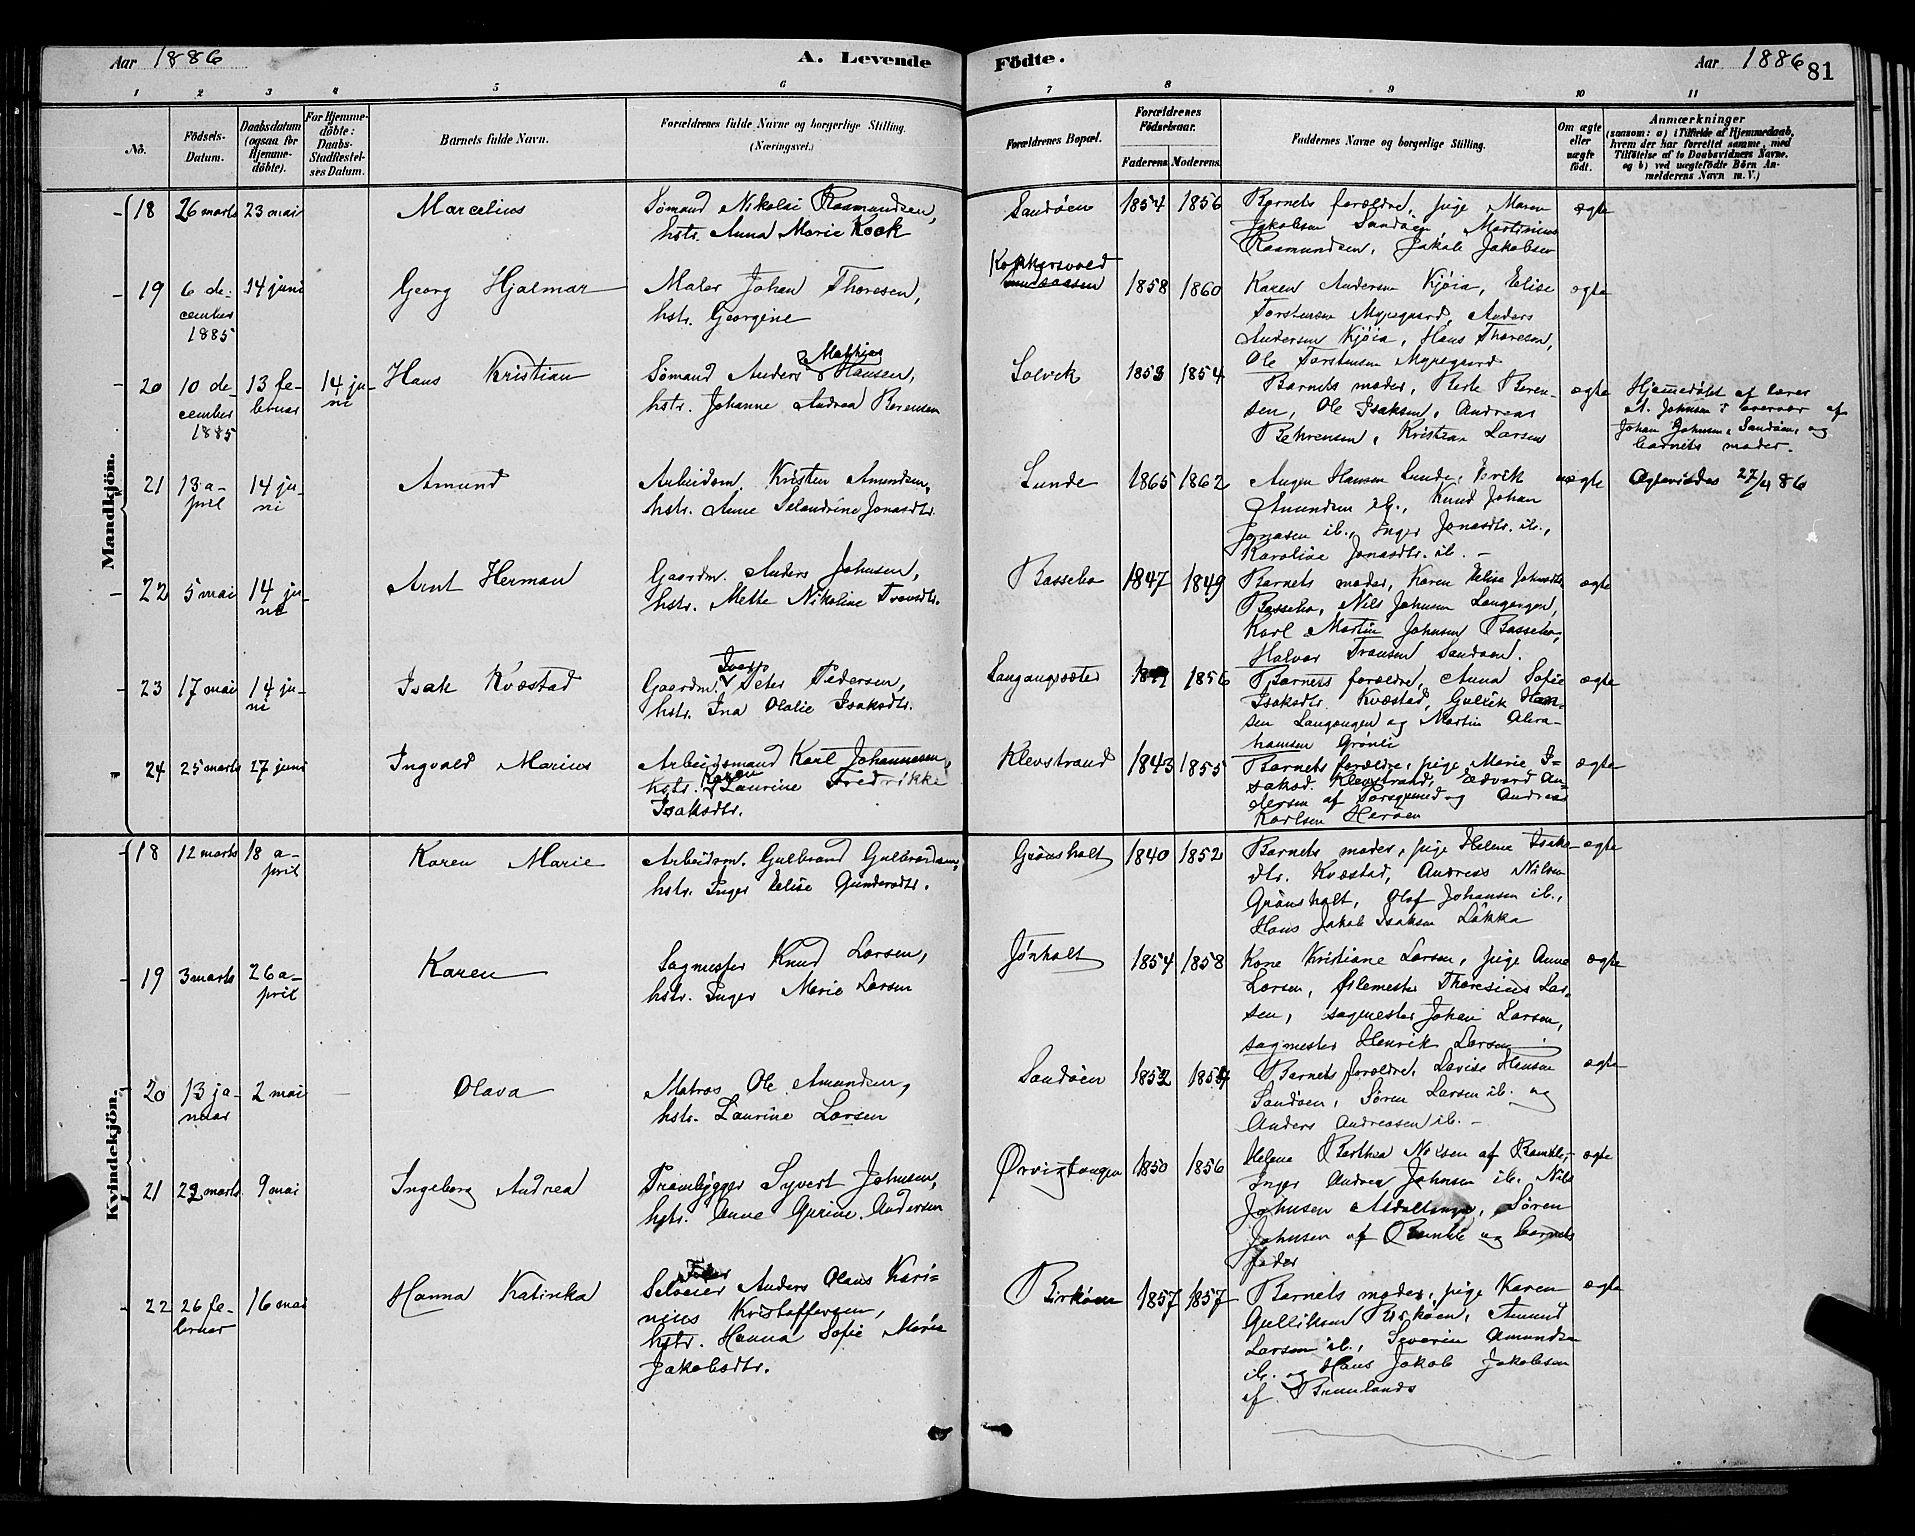 Aar 1886
A. Levende
Födte.
Aar 1886
81
1 2 3 4 5 6 7 8 9 10 11
No.
Födsels-
Datum.
Daabsdatum
(ogsaa for
Hjemme-
döbte).
For Hjemme-
döbte:
Daabs-
Stadfæstel-
ses Datum.
Barnets fulde Navn.
Forældrenes fulde Navne og borgerlige Stilling.
(Næringsvei.)
Forældrenes Bopæl.
Forældrenes
Födselsaar.
Faderens Moderens
Faddernes Navne og borgerlige Stilling.
Om ægte
eller
uægte
födt.
Anmærkninger
(saasom: a) i Tilfælde af Hjemmedaab,
hvem der har forrettet samme, med
Tilföielse af to Daabsvidners Navne,
og b) ved uægtefödte Börn An-
melderens Navn m. V.)
Mandkjön.
18
26 marts
23 mai
Marcelius
Sømand Nikolai Rasmundsen,
hstr. Anna Marie Kook
Sandøen
1854 1856
Barnets forældre, pige Maren
Jakobsen Sandøen, Martinius
Rasmundsen, Jakob Jakobsen
ægte
19
6 de-
cember
1885
14 juni
Georg Hjalmar
Maler Johan Thoresen,
hstr. Georgine
Kokkersvold
1858 1860
Karen Andersen Kjøia, Elise
Torstensen Myregaard, Anders
Andersen Kjøia, Hans Thoresen,
Ole Torstensen Myregaard
ægte
20
10 de-
cember
1885
13 fe-
bruar
14 ju-
ni
Hans Kristian
Mathias
Sømand Anders Hansen,
hstr. Johanne Andrea Berensen
Solvik
1853 1854
Barnets moder, Berte Beren-
sen, Ole Isaksen, Andreas
Behrensen, Kristian Larsen
ægte
Hjemmedøbt af lærer
A. Johnsen i overvær af
Johan Johnsen, Sandøen, og
barnets moder.
21
18 a-
pril
14 ju-
ni
Amund
Arbeidsm. Kristen Amundsen,
hstr. Anne Selandrine Jonasdtr.
Lunde
1865 1862
Augen Hansen Lunde, Eerik
Amundsen ib., Knud Johan
Jonasen ib., Inger Jonasdtr. ib.,
Karoline Jonasdtr. ib. –
uægte
Ægteviedes 27/4 86
22
5 mai
14 ju-
ni
Arnt Herman
Gaardm. Anders Johnsen,
hstr. Mette Nikoline Tovsdtr.
Bassebo
1847 1849
Barnets moder, Karen Elise Johnsdtr.
Bassebo, Nils Johnsen Langangen,
Karl Martin Johnsen Bassebo,
Halvor Fransen Sandøen.
ægte
23
17 mai
14 ju-
ni
Isak Kvæstad
Iver
Gaardm. Peter Pedersen,
hstr. Ina Olalie Isaksdtr.
Langangsæter
1856
Barnets forældre, Anna Sofie
Isaksdtr. Kvæstad, Gullik Han-
sen Langangen og Martin Abra-
hamsen Grønli
ægte
24
25 marts
27 juni
Ingvald Marius
Arbeidsmand Karl Johannesen,
Karen
hstr. Laurine Fredrikke
Isaksdtr.
Klevstrand
1843 1855
Barnets forældre, pige Marie I-
saksd. Klevstrand, Edvard An-
dersen af Porsgrund og Andreas
Karlsen Herøen
ægte
Kvindekjön.
18
12 marts
18 a-
pril
Karen Marie
Arbeidsm. Gulbrand Gulbrandsen,
hstr. Inger Elise Gundersdtr.
Grønsholt
1840 1852
Barnets moder, pige Helene Isaks-
dtr. Kvæstad, Andreas Nilsen
Grønsholt, Olaf Johansen ib.,
Hans Jakob Isaksen Løkka
ægte
19
3 marts
26 a-
pril
Karen
Sagmester Knud Larsen,
hstr. Inger Marie Larsen
Jønholt
1854 1858
Kone Kristiane Larsen, pige Anne
Larsen, Ølemester Thoresius Lar-
sen, sagmester Johan Larsen,
sagmester Henrik Larsen
ægte
20
13 ja-
nuar
2 mai
Olava
Matros Ole Amundsen,
hstr. Laurine Larsen
Sandøen
1852 1854
Barnets forældre, Lovise Hansen
Sandøen, Søren Larsen ib. og
Anders Andreasen ib. –
ægte
21
22 marts
9 mai
Ingeborg Andrea
Prambygger Syvert Johnsen,
hstr. Anne Gurine Andersen
Ørvigtangen
1850 1856
Helene Berthea Nilsen af Bamble,
Inger Andrea Johnsen ib. Nils
Johnsen Asdaltangen, Søren
Johnsen af Bamble og barnets
fader
ægte
22
26 fe-
bruar
16 mai
Hanna Katinka
Selveier Anders Olaus Kari-
nius Kristoffersen,
hstr. Hanna Sofie Marie
Jakobsdtr.
Birkøen
1857 1857
Barnets moder, pige Karen
Gulliksen Birkøen, Amund
Larsen ib., Severin Amundsen
ib. og Hans Jakob Jakobsen
af Brunlanæs
ægte